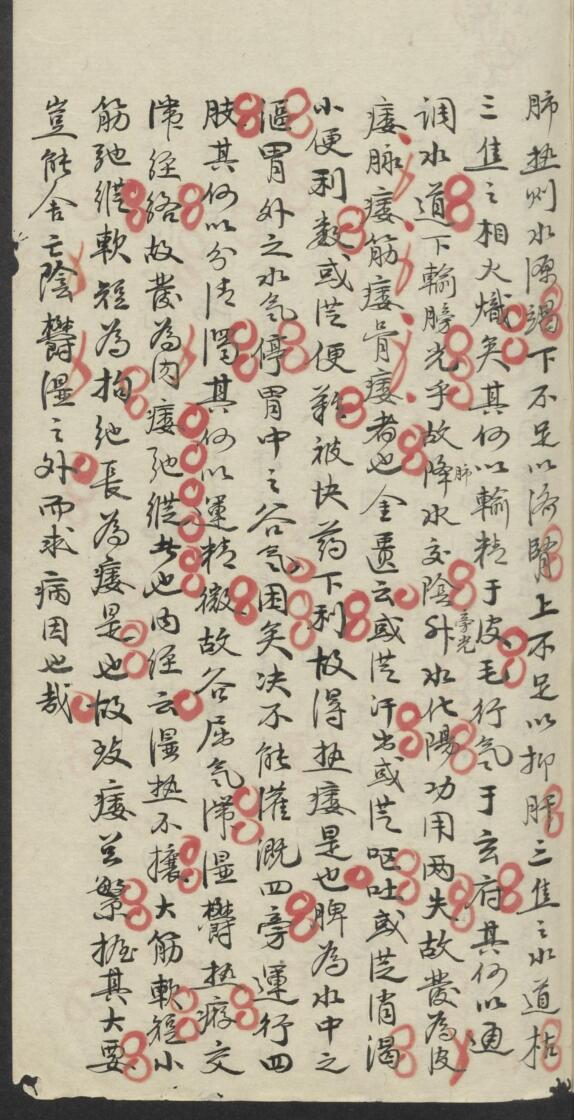 肺热则水源竭下不足以济腎上不足以抑肝三焦之水道枯
三焦之相火熾矣其何以輸精于皮毛行气于玄府其何以通
调水道下輸膀光乎故降肺水交陰升旁光水化陽功用两失故發為皮
痿脉痿筋痿骨痿者也金匮云或從汗出或從呕吐或從消渴
小便利数或從便難被快药下利故得热痿是也脾為水中之
胃外之水气停胃中之谷气困矣决不能灌溉四旁運行四
肢其何以分清濁其何以運精微故谷居气滞湿欝热瘀交
滞經絡故發為肉痿弛縱者也内經云湿热不攘大筋軟短小
筋弛縱軟短為拘弛長為痿是也故致痿甚繁握其大要
豈能舍亡陰欝湿之外而求病因也哉